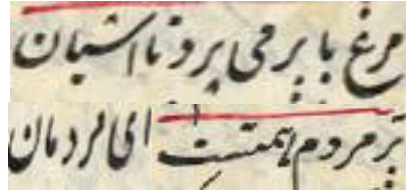 مرغ با پر می پرد تا آشیان
پر مردم همتست ای مردمان